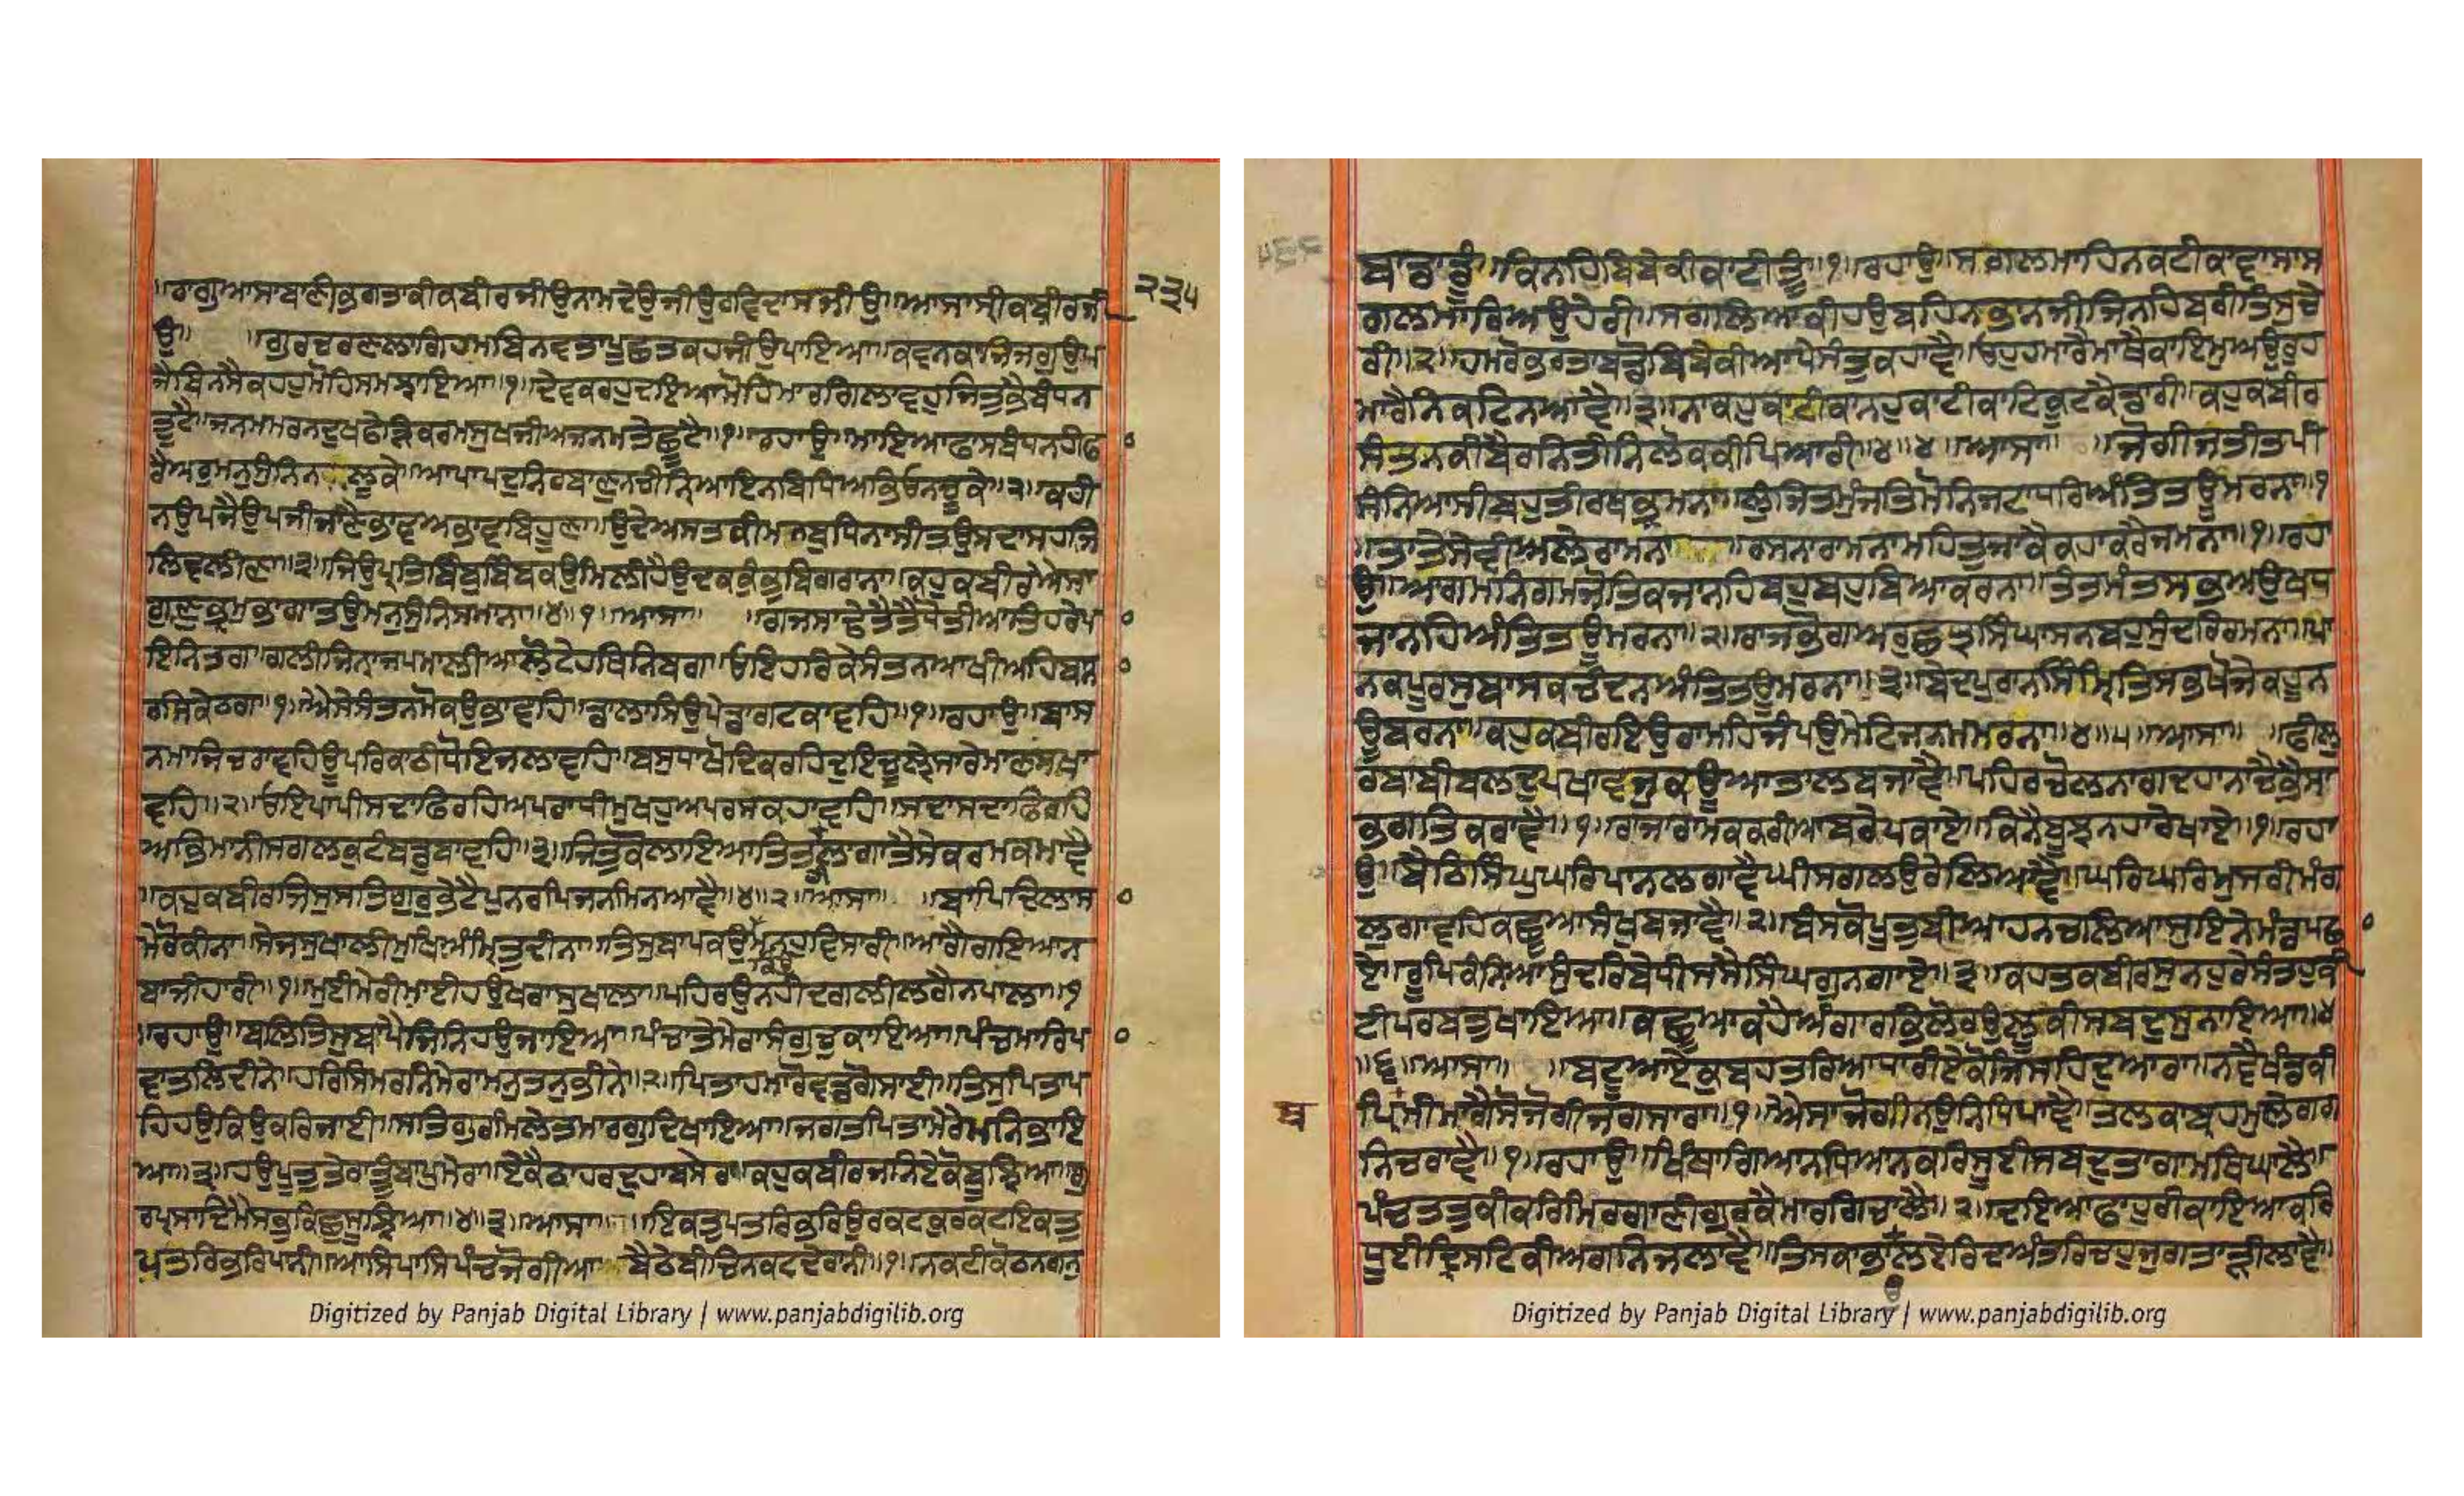 ॥ਰਾਗੁਆਸਾਬਾਣੀਭਗਤਾਕੀਕਬੀਰਜੀਉਨਾਮਦੇਉਜੀਉਰਵਿਦਾਸਜੀਉ॥ਆਸਾਸ੍ਰੀਕਬੀਰਜੀ ੨੩੫
ਉ॥ ॥ਗੁਰਚਰਣਲਾਗਿਹਮਬਿਨਵਤਾਪੂਛਤਕਹਜੀਉਪਾਇਆ॥ਕਵਨਕਾਜਿਜਗੁਉਪ
ਜੈਬਿਨਸੈਕਹਹੁਮੋਹਿਸਮਝਾਇਆ॥੧॥ਦੇਵਕਰਹੁਦਇਆਮੋਹਿਮਾਰਗਿਲਾਵਹੁਜਿਤੁਭੈਬੰਧਨ
ਤੂਟੈ॥ਜਨਮਮਰਨਦੁਖਫੇੜਿਕਰਮਸੁਖਜੀਅਜਨਮਤੇਛੂਟੈ॥੧॥ਰਹਾਉ॥ਮਾਇਆਫਾਸਬੰਧਨਹੀਫ
ਰੈਅਰੁਮਨੁਸੁੰਨਿਨਲੂਕੇ॥ਆਪਾਪਦੁਨਿਰਬਾਣੁਨਚੀਨਿਆਇਨਬਿਧਿਅਭਿਉਨਚੂਕੇ॥੨॥ਕਹੀ
ਨਉਪਜੈਉਪਜੀਜਾਣੈਭਾਵਅਭਾਵਬਿਹੂਣਾ॥ਉਦੇਅਸਤਕੀਮਨਬੁਧਿਨਾਸੀਤਉਸਦਾਸਹਜਿ
ਲਿਵਲੀਣਾ॥੩॥ਜਿਉਪ੍ਰਤਿਬਿੰਬੁਬਿੰਬਕਉਮਿਲੀਹੈਉਦਕਕੁੰਭੁਬਿਗਰਾਨਾ॥ਕਹੁਕਬੀਰਐਸਾ
ਗੁਣਭ੍ਰਮੁਭਾਗਾਤਉਮਨੁਸੁੰਨਿਸਮਾਨਾ॥੪॥੧॥ਆਸਾ॥ ॥ਗਜਸਾਢੇਤੈਤੈਧੋਤੀਆਤਿਹਰੇਪਾ
ਇਨਿਤਗ॥ਗਲੀਜਿਨਾਜਪਮਾਲੀਆਲੋਟੇਹਥਿਨਿਬਗ॥ਓਇਹਰਿਕੇਸੰਤਨਆਖੀਅਹਿਬਾਨਾ
ਰਸਿਕੇਠਗ॥੧॥ਐਸੇਸੰਤਨਮੋਕਉਭਾਵਹਿ॥ਡਾਲਾਸਿਉਪੇਡਾਗਟਕਾਵਹਿ॥੧॥ਰਹਾਉ॥ਬਾਸ
ਨਮਾਜਿਚਰਾਵਹਿਊਪਰਿਕਾਠੀਧੋਇਜਲਾਵਹਿ॥ਬਸੁਧਾਖੋਦਿਕਰਹਿਦੁਇਚੂਲ੍ਹੇਸਾਰੇਮਾਣਸਖਾ
ਵਹਿ॥੨॥ਓਇਪਾਪੀਸਦਾਫਿਰਹਿਅਪਰਾਧੀਮੁਖਹੁਅਪਰਸਕਹਾਵਹਿ॥ਸਦਾਸਦਾਫਿਰਹਿ
ਅਭਿਮਾਨੀਸਗਲਕੁਟੰਬਡੁਬਾਵਹਿ॥੩॥ਜਿਤੁਕੋਲਾਇਆਤਿਤੁਲਾਗਾਤੈਸੇਕਰਮਕਮਾਵੈ
॥ਕਹੁਕਬੀਰਜਿਸੁਸਤਿਗੁਰੁਭੇਟੈਪੁਨਰਪਿਜਨਮਿਨਆਵੈ॥੪॥੨॥ਆਸਾ॥ ॥ਬਾਪਿਦਿਲਾਸਾ
ਮੇਰੋਕੀਨਾ॥ਸੇਜਸੁਖਾਲੀਮੁਖਿਅੰਮ੍ਰਿਤੁਦੀਨਾ॥ਤਿਸੁਬਾਪਕਉਮਨਹੁਵਿਸਾਰੀ॥ਆਗੈਗਇਆਨ
ਬਾਜੀਹਾਰੀ॥੧॥ਮੁਈਮੇਰੀਮਾਈਹਉਖਰਾਸੁਖਾਲਾ॥ਪਹਿਰਉਨਹੀਦਗਲੀਲਗੈਨਪਾਲਾ॥੧
॥ਰਹਾਉ॥ਬਲਿਤਿਸੁਬਾਪੈਜਿਨਿਹਉਜਾਇਆ॥ਪੰਚਾਤੇਮੇਰਾਸੰਗੁਚੁਕਾਇਆ॥ਪੰਚਮਾਰਿਪਾ
ਵਾਤਲਿਦੀਨੇ॥ਹਰਿਸਿਮਰਨਿਮੇਰਾਮਨੁਤਨੁਭੀਨੇ॥੨॥ਪਿਤਾਹਮਾਰੋਵਡਗੋਸਾਈ॥ਤਿਸੁਪਿਤਾਪ
ਹਿਹਉਕਿਉਕਰਿਜਾਈ॥ਸਤਿਗੁਰਮਿਲੇਤਮਾਰਗੁਦਿਖਾਇਆ॥ਜਗਤਪਿਤਾਮੇਰੈਮਨਿਭਾਇ
ਆ॥੩॥ਹਉਪੂਤੁਤੇਰਾਤੂੰਬਾਪੁਮੇਰਾ॥ਏਕੈਠਾਹਰਦੁਹਾਬਸੇਰਾ॥ਕਹੁਕਬੀਰਜਨਿਏਕੋਬੂਝਿਆ॥ਗੁ
ਰਪ੍ਰਸਾਦਿਮੈਸਭੁਕਿਛੁਸੂਝਿਆ॥੪॥੩॥ਆਸਾ॥ ॥ਇਕਤੁਪਤਰਿਭਰਿਉਰਕਟਕੁਰਕਟਇਕਤੁ
ਪਤਰਿਭਰਿਪਾਨੀ॥ਆਸਿਪਾਸਿਪੰਚਜੋਗੀਆਬੈਠੇਬੀਚਿਨਕਟਦੇਰਾਨੀ॥੧॥ਨਕਟੀਕੋਠਨਗਨੁ
Digitized by Panjab Digital Library | www.panjabdigilib.org
੫੬੬
ਬਾਡਾਡੂੰ॥ਕਿਨਹਿਬਿਬੇਕੀਕਾਟੀਤੂੰ॥੧॥ਰਹਾਉ॥ਸਗਲਮਾਹਿਨਕਟੀਕਾਵਾਸਾਸ
ਗਲਮਾਰਿਅਉਹੇਰੀ॥ਸਗਲਿਆਕੀਹਉਬਹਿਨਭਾਨਜੀਜਿਨਹਿਬਰੀਤਿਸੁਚੇ
ਰੀ॥੨॥ਹਮਰੋਭਰਤਾਬਡੋਬਿਬੇਕੀਆਪੇਸੰਤੁਕਹਾਵੈ॥ਓਹੁਹਮਾਰੈਮਾਥੈਕਾਇਮੁਅਉਰੁਹ
ਮਰੈਨਿਕਟਿਨਆਵੈ॥੩॥ਨਾਕਹੁਕਾਟੀਕਾਨਹੁਕਾਟੀਕਾਟਿਕੂਟਕੈਡਾਰੀ॥ਕਹੁਕਬੀਰ
ਸੰਤਨਕੀਬੈਰਨਿਤੀਨਿਲੋਕਕੀਪਿਆਰੀ॥੪॥੪॥ਆਸਾ॥ ॥ਜੋਗੀਜਤੀਤਪੀ
ਸੰਨਿਆਸੀਬਹੁਤੀਰਥਭ੍ਰਮਨਾ॥ਲੁੰਜਿਤਮੁੰਜਤਿਮੋਨਿਜਟਾਧਰਿਅੰਤਿਤਊਮਰਨਾ॥੧
॥ਤਾਤੇਸੇਵੀਅਲੇਰਾਮਨਾ ॥ਰਸਨਾਰਾਮਨਾਮਹਿਤੁਜਾਕੈਕਹਾਕਰੈਜਮਨਾ॥੧॥ਰਹਾ
ਉ॥ਆਗਮਨਿਗਮਜੋਤਿਕਜਾਨਹਿਬਹੁਬਹੁਬਿਆਕਰਨਾ॥ਤੰਤਮੰਤਸਭਅਉਖਧ
ਜਾਨਹਿਅੰਤਿਤਊਮਰਨਾ॥੨॥ਰਾਜਭੋਗਅਰੁਛਤ੍ਰਸਿੰਘਾਸਨਬਹੁਸੁੰਦਰਿਰਮਨਾ॥ਪਾ
ਨਕਪੂਰਸੁਬਾਸਕਚੰਦਨਅੰਤਿਤਊਮਰਨਾ॥੩॥ਬੇਦਪੁਰਾਨਸਿੰਮ੍ਰਿਤਿਸਭਖੋਜੇਕਹੂਨ
ਊਬਰਨਾ॥ਕਹੁਕਬੀਰਇਉਰਾਮਹਿਜੰਪਉਮੇਟਿਜਨਮਮਰਨਾ॥੪॥੫॥ਆਸਾ॥ ॥ਫੀਲੁ
ਰਬਾਬੀਬਲਦੁਪਖਾਵਜੁਕਊਆਤਾਲਬਜਾਵੈ॥ਪਹਿਰਚੋਲਨਾਗਦਹਾਨਾਚੈਭੈਸਾ
ਭਗਤਿਕਰਾਵੈ॥੧॥ਰਾਜਾਰਾਮਕਕਰੀਆਬਰੇਪਕਾਏ॥ਕਿਨੈਬੂਝਨਹਾਰੈਖਾਏ॥੧॥ਰਹਾ
ਉ॥ਬੈਠਿਸਿੰਘੁਘਰਿਪਾਨਲਗਾਵੈਘੀਸਗਲਉਰੇਲਿਆਵੈ॥ਘਰਿਘਰਿਮੁਸਰੀਮੰਗ
ਲੁਗਾਵਹਿਕਛੂਆਸੰਖੁਬਜਾਵੈ॥੨॥ਬੰਸਕੋਪੂਤੁਬੀਆਹਨਚਲਿਆਸੁਇਨੇਮੰਡਪਛਾ
ਏ॥ਰੂਪਿਕੰਨਿਆਸੁੰਦਰਿਬੇਧੀਸਸੈਸਿੰਘਗੁਨਗਾਏ॥੩॥ਕਹਤਕਬੀਰਸੁਨਹੁਰੇਸੰਤਹੁਕੀ
ਟੀਪਰਬਤੁਖਾਇਆ॥ਕਛੂਆਕਹੈਅੰਗਾਰਭਿਲੋਰਉਲੂਕੀਸਬਦੁਸੁਨਾਇਆ॥੪
॥੬॥ਆਸਾ॥ ॥ਬਟੂਆਏਕੁਬਹਤਰਿਆਧਾਰੀਏਕੋਜਿਸਹਿਦੁਆਰਾ॥ਨਵੈਖੰਡਕੀ
ਪ੍ਰਿਥਮੀਮਾਗੈਸੋਜੋਗੀਜਗਸਾਰਾ॥੧॥ਐਸਾਜੋਗੀਨਉਨਿਧਿਪਾਵੈ॥ਤਲਕਾਬ੍ਰਹਮੁਲੇਗਗ
ਨਿਚਰਾਵੈ॥੧॥ਰਹਾਉ॥ਖਿੰਥਾਗਿਆਨਧਿਆਨਕਰਿਸੂਈਸਬਦੁਤਾਗਾਮਥਿਘਾਲੈ॥
ਪੰਚਤਤੁਕੀਕਰਿਮਿਰਗਾਣੀਗੁਰਕੈਮਾਰਗਿਚਾਲੈ॥੨॥ਦਇਆਫਾਹੁਰੀਕਾਇਆਕਰਿ
ਧੂਈਦ੍ਰਿਸਟਿਕੀਅਗਨਿਜਲਾਵੈ॥ਤਿਸਕਾਭਾਉਲਏਰਿਦਅੰਤਰਿਚਹੁਜੁਗਤਾੜੀਲਾਵੈ॥
Digitized by Panjab Digital Library | www.panjabdigilib.org